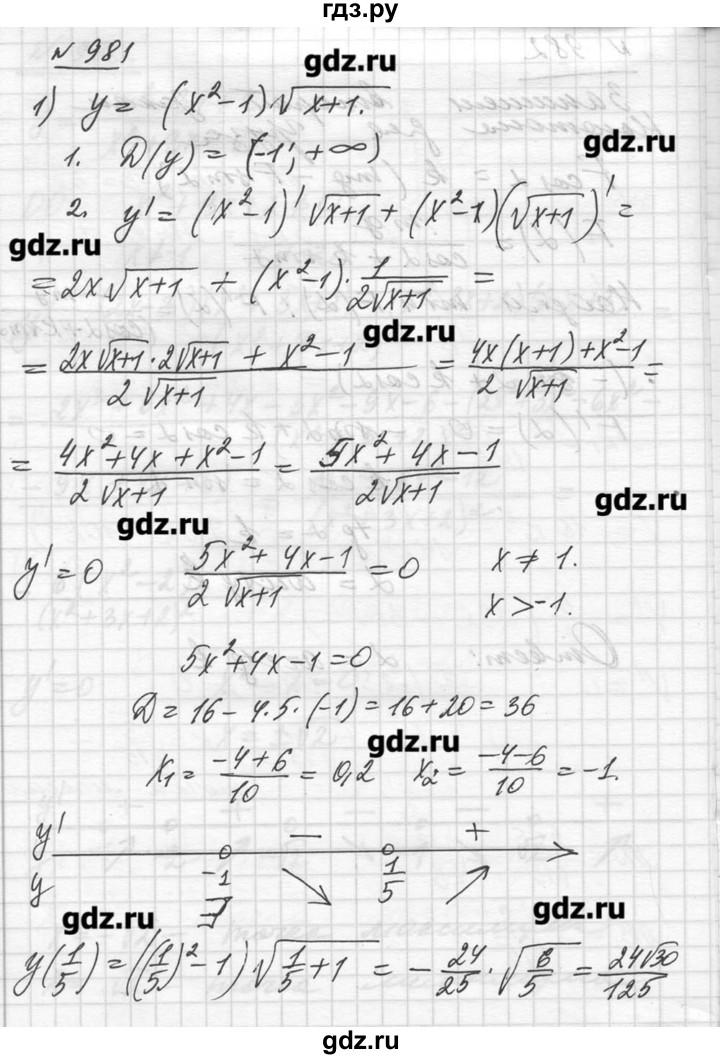 гдз.ру
№ 981
gdz.ru
1) y = (x²-1)√(x+1).
gdz.ru
1. D(y) = (-1; +∞)
2. y' = (x²-1)'√(x+1) + (x²-1)(√(x+1))' =
gdz.ru
= 2x√(x+1) + (x²-1)·1/(2√(x+1)) =
gdz.ru
= (2x√(x+1)·2√(x+1) + x²-1)/(2√(x+1)) = (4x(x+1)+x²-1)/(2√(x+1)) =
= (4x²+4x+x²-1)/(2√(x+1)) = (5x²+4x-1)/(2√(x+1))
gdz.ru
gdz.ru
y' = 0 (5x²+4x-1)/(2√(x+1)) = 0 x ≠ 1.
x > -1.
5x²+4x-1=0
D = 16-4·5·(-1) = 16+20 = 36
gdz.ru
x₁ = (-4+6)/10 = 0,2 x₂ = (-4-6)/10 = -1.
y' - +
y -1 1/5
gdz.ru
gdz.ru
y(1/5) = ((1/5)²-1)√(1/5+1) = -24/25·√(6/5) = 24√30/125
gdz.ru